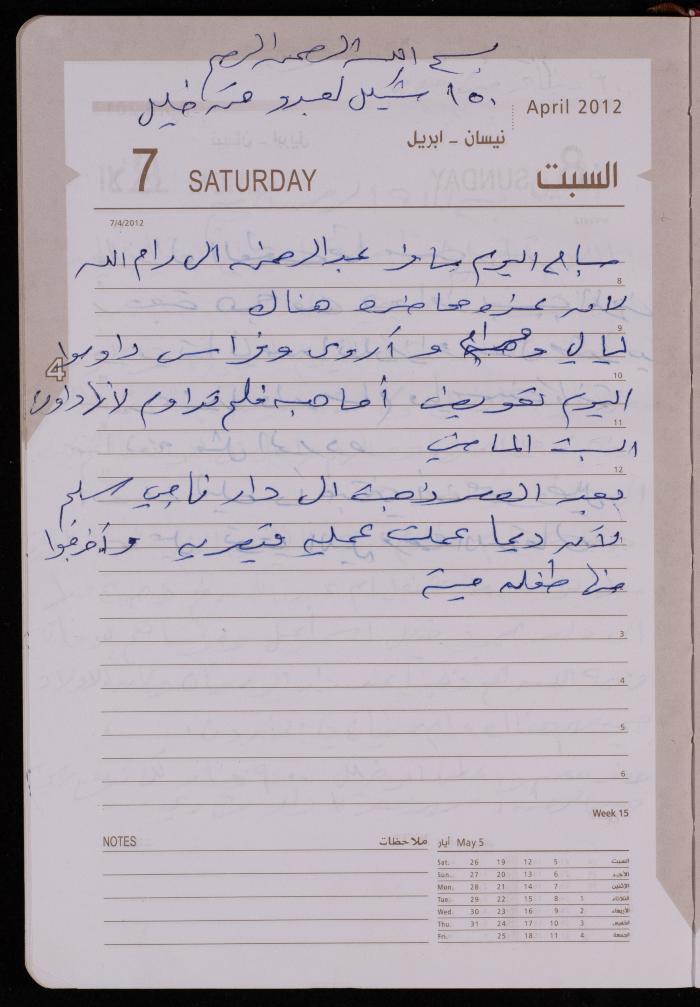 بسم الله الرحمن الرحيم
١٥٠ شيكل لعبدو من خليل
April 2012
نيسان - ابريل
7 SATURDAY السبت
7/4/2012
صباح اليوم سافر عبدالرحمن الى رام الله
8
لأمر عنده محاضره هناك
9
ليالي و و أروى وفراس داوموا
4
10
اليوم تعويض أما هبه فلم تداوم لأنها داومت
11
السبت الماضي
12
بعد العصر ذهبت الى دار ناجي سليم
لأن ديما عملت عمليه قيصريه وأخرجوا
منها طفله ميتة
3
4
5
6
Week 15
NOTES ملاحظات
May 5 أيار
Sat. 26 19 12 5 السبت
Sun. 27 20 13 6 الأحد
Mon. 28 21 14 7 الاثنين
Tue. 29 22 15 8 1 الثلاثاء
Wed. 30 23 16 9 2 الأربعاء
Thu. 31 24 17 10 3 الخميس
Fri. 25 18 11 4 الجمعة